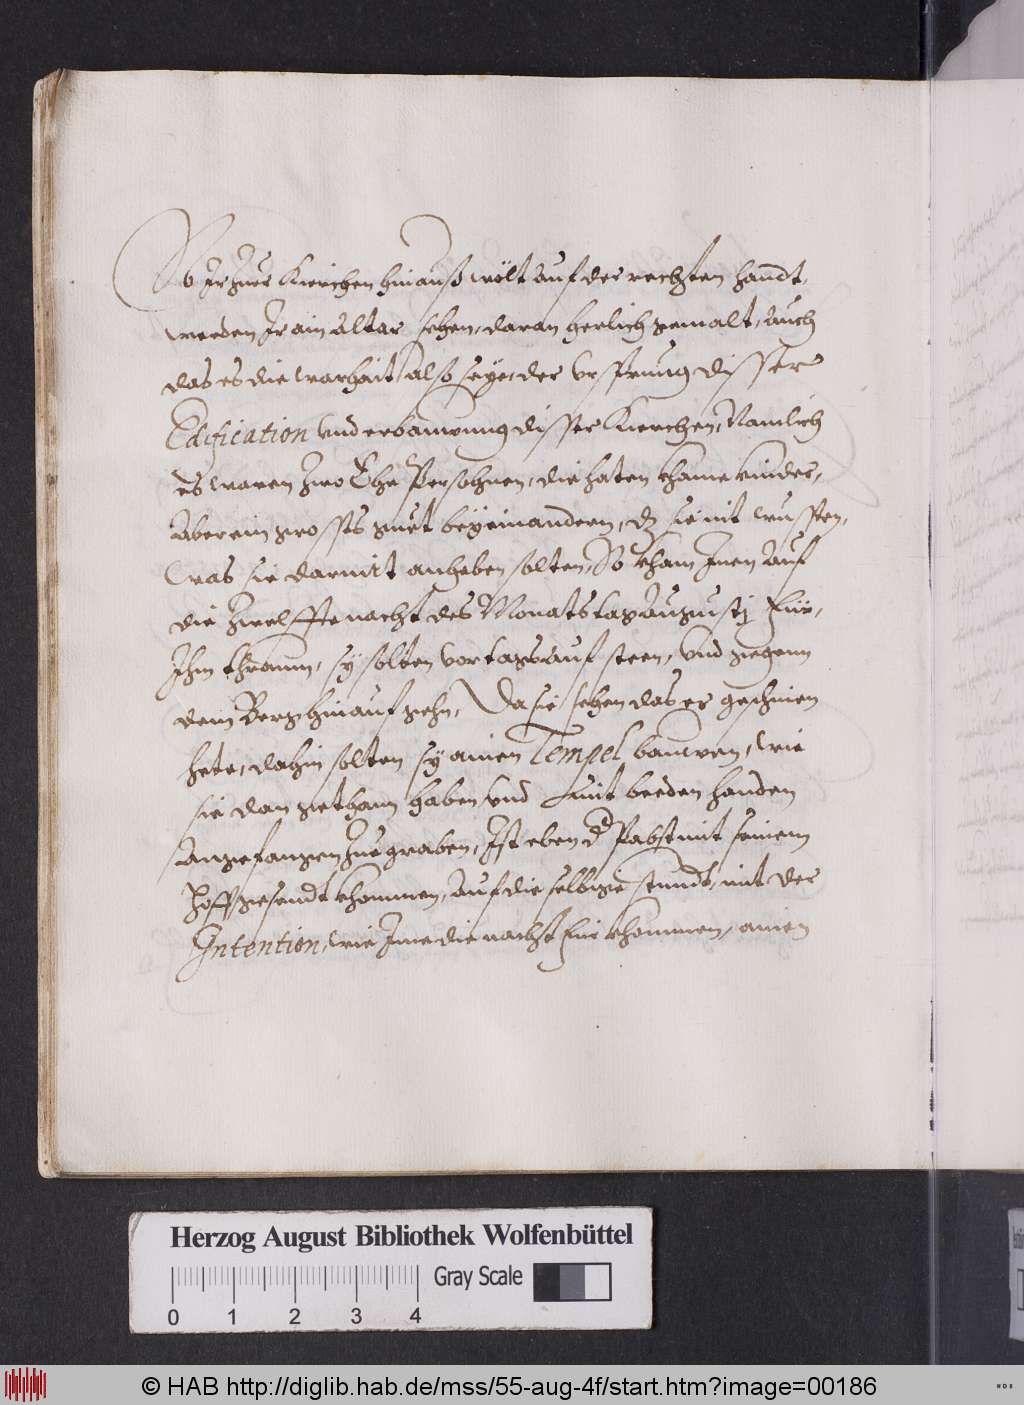 So Ir zur Kierchen hinauß wölt auf der rechten handt,
werden Ir ain Altar sehen, daran herlich gemalt, auch
das es die warhait also seye, der Vrsprung disser
Edification vnd erbauwung disser Kierchen, Namlich
es waren zwo Ehe Persohnen, die haten khaine kinder,
Aber ein grosses guet beyeinandern, dz sie nit wussten,
was sie darmit anheben solten, So kham Inen auf
die zwelffte nacht des Monatstag Augustj für,
Ihm thraum, sy solten vor tags auf steen, vnd gegenn
dem Berg hinauf gehn, Da sie sehen das es geschnien
hete, dahin solten sy ainen Tempel bauwen, wie
sie dan gethann haben vnd mit beeden handen
Angefangen zue graben, Ist eben d Pabst mit seinem
Hoffgesandt khommen, auf die selbige stundt, mit der
Intention, wie Ime die nacht für khommen, ainen
Herzog August Bibliothek Wolfenbüttel
Gray Scale
0 1 2 3 4
© HAB http://diglib.hab.de/mss/55-aug-4f/start.htm?image=00186